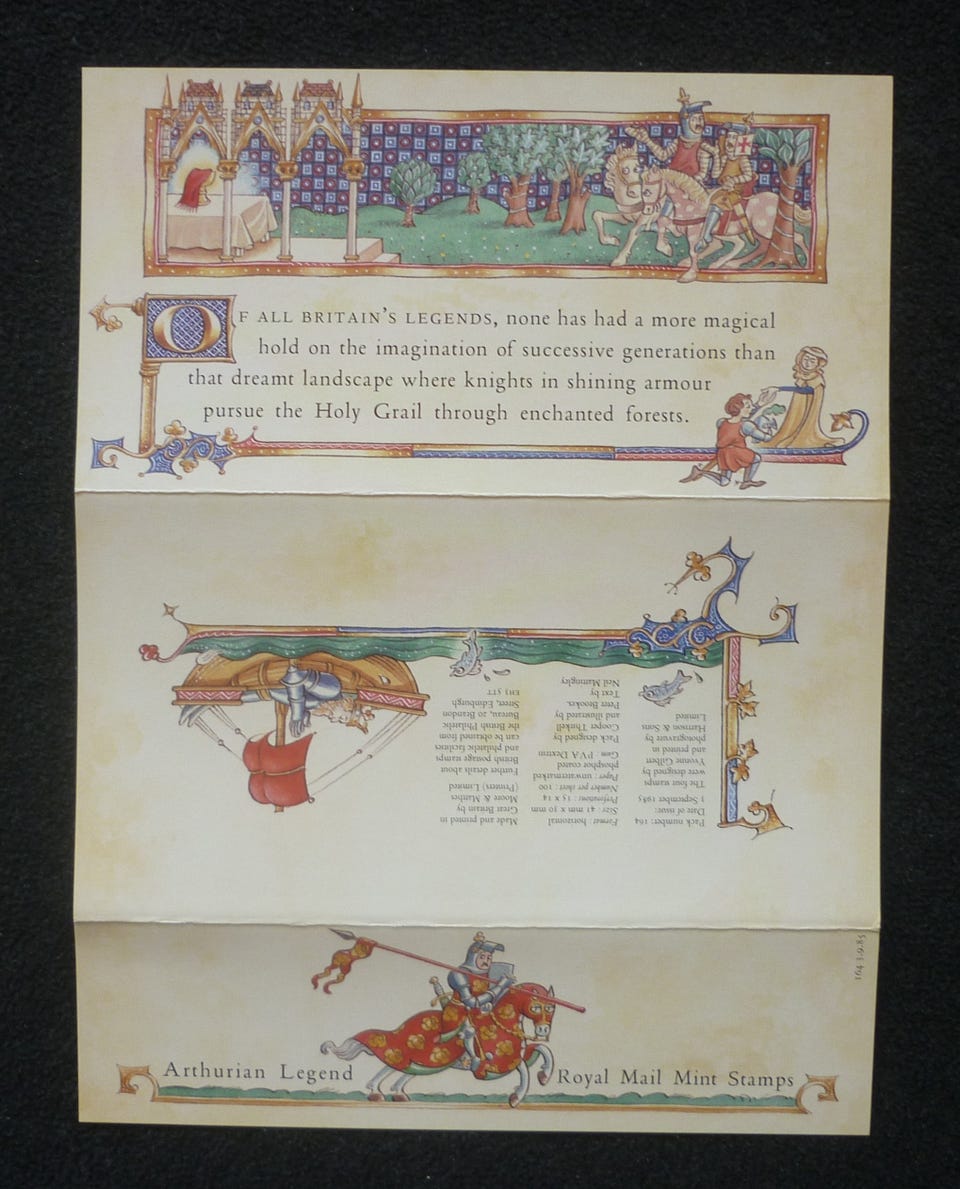 OF ALL BRITAIN'S LEGENDS, none has had a more magical
hold on the imagination of successive generations than
that dreamt landscape where knights in shining armour
pursue the Holy Grail through enchanted forests.
Pack number: 164
Date of issue:
3 September 1985
The four stamps
were designed by
Yvonne Gilbert
and printed in
photogravure by
Harrison & Sons
Limited
Format: horizontal
Size: 41 mm x 30 mm
Perforation: 15 x 14
Number per sheet: 100
Paper: unwatermarked
phosphor coated
Gum: PVA Dextrin
Pack designed by
Cooper Thirkell
and illustrated by
Peter Brookes.
Text by
Neil Mattingley
Made and printed in
Great Britain by
Moore & Matthes
(Printers) Limited
Further details about
British postage stamps
and philatelic facilities
can be obtained from
the British Philatelic
Bureau, 20 Brandon
Street, Edinburgh
EH3 5TT
164 3.9.85
Arthurian Legend
Royal Mail Mint Stamps